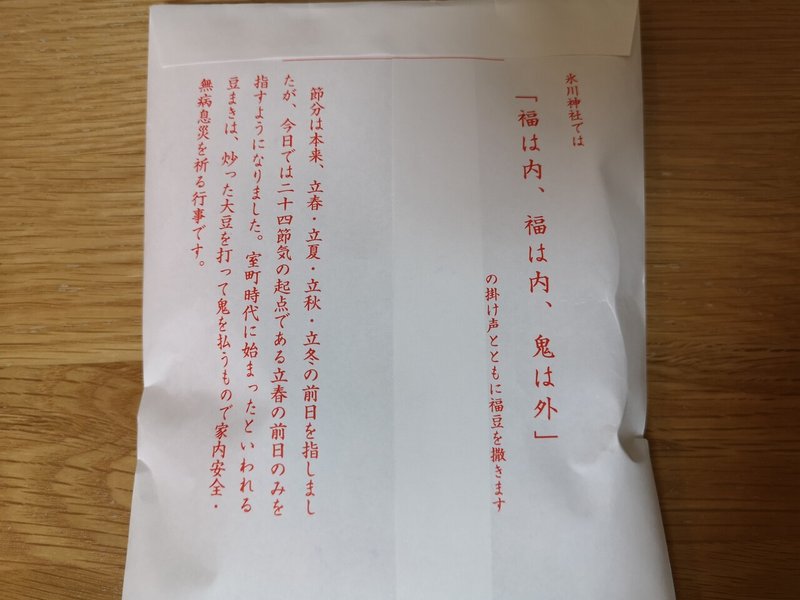 氷川神社では
「福は内、福は内、鬼は外」
の掛け声とともに福豆を撒きます
節分は本来、立春・立夏・立秋・立冬の前日を指しまし
たが、今日では二十四節気の起点である立春の前日のみを
指すようになりました。室町時代に始まったといわれる
豆まきは、炒った大豆を打って鬼を払うもので家内安全・
無病息災を祈る行事です。